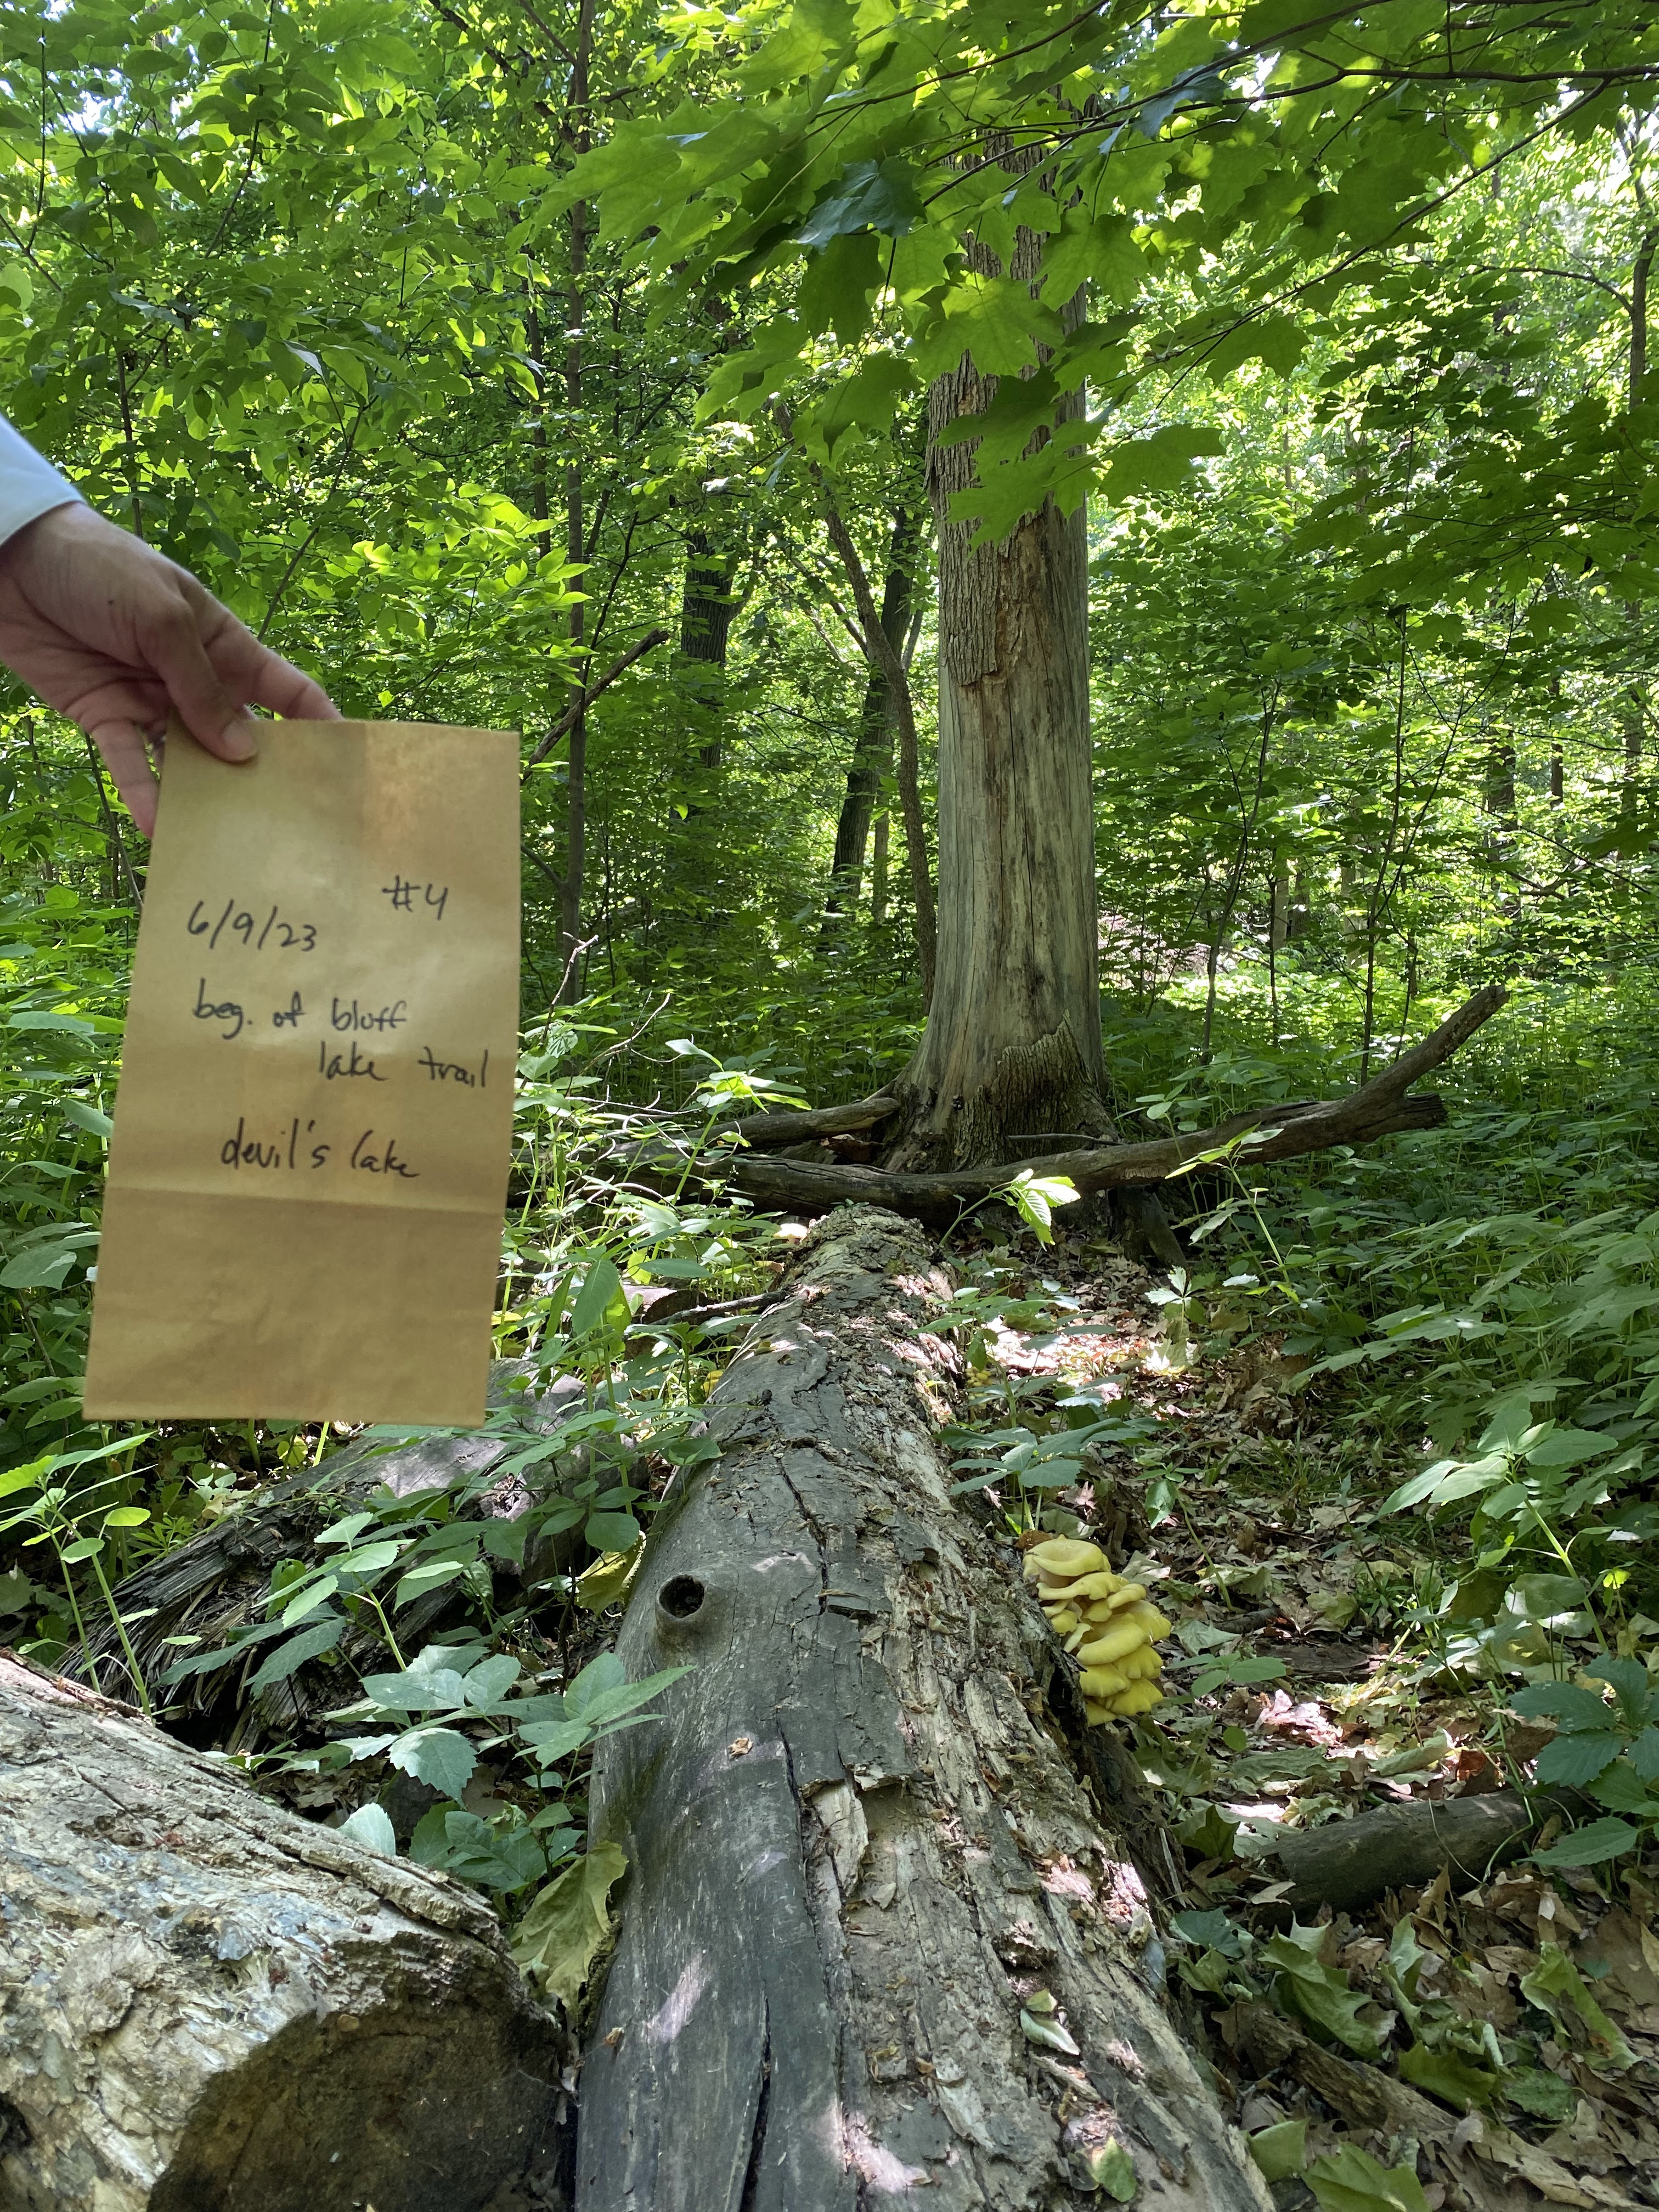 #4
6/9/23
beg. of bluff
lake trail
devil's lake